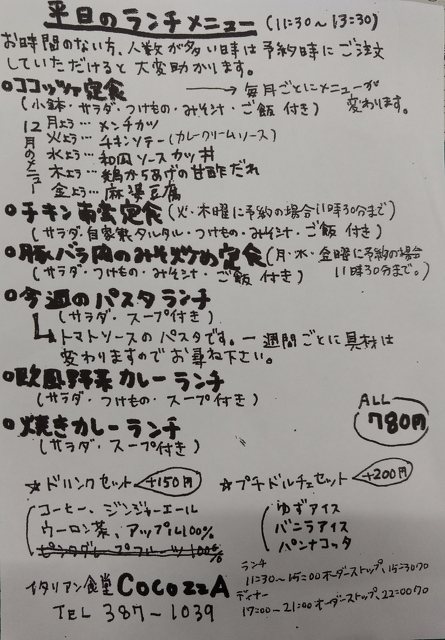 平日のランチメニュー (11:30〜13:30)
お時間のない方、人数が多い時は予約時にご注文
していただけると大変助かります。
ココッツァ定食 → 毎月ごとにメニューが
(小鉢・サラダ・つけもの・みそ汁・ご飯 付き) 変わります。
12月のメニュー
月よう… メンチカツ
火よう… チキンソテー(カレークリームソース)
水よう… 和風ソースカツ丼
木よう… 鶏からあげの甘酢だれ
金よう… 麻婆豆腐
チキン南蛮定食 (火・木曜に予約の場合11時30分まで)
(サラダ・自家製タルタル・つけもの・みそ汁・ご飯 付き)
豚バラ肉のみそ炒め定食 (月・水・金曜に予約の場合
(サラダ・つけもの・みそ汁・ご飯 付き) 11時30分まで。)
今週のパスタランチ
(サラダ・スープ付き)
トマトソースのパスタです。一週間ごとに具材は
変わりますのでお尋ね下さい。
欧風野菜カレーランチ
(サラダ・つけもの・スープ付き)
焼きカレーランチ
(サラダ・スープ付き)
ALL
780円
☆ドリンクセット +150円
コーヒー、ジンジャーエール
ウーロン茶、アップル100%
ピンクグレープフルーツ100%
☆プチドルチェセット +200円
ゆずアイス
バニラアイス
パンナコッタ
イタリアン食堂 COCOZZA
TEL 387-1039
ランチ
11:30〜15:00オーダーストップ、15:30クロ
ディナー
17:00〜21:00オーダーストップ、22:00クロ